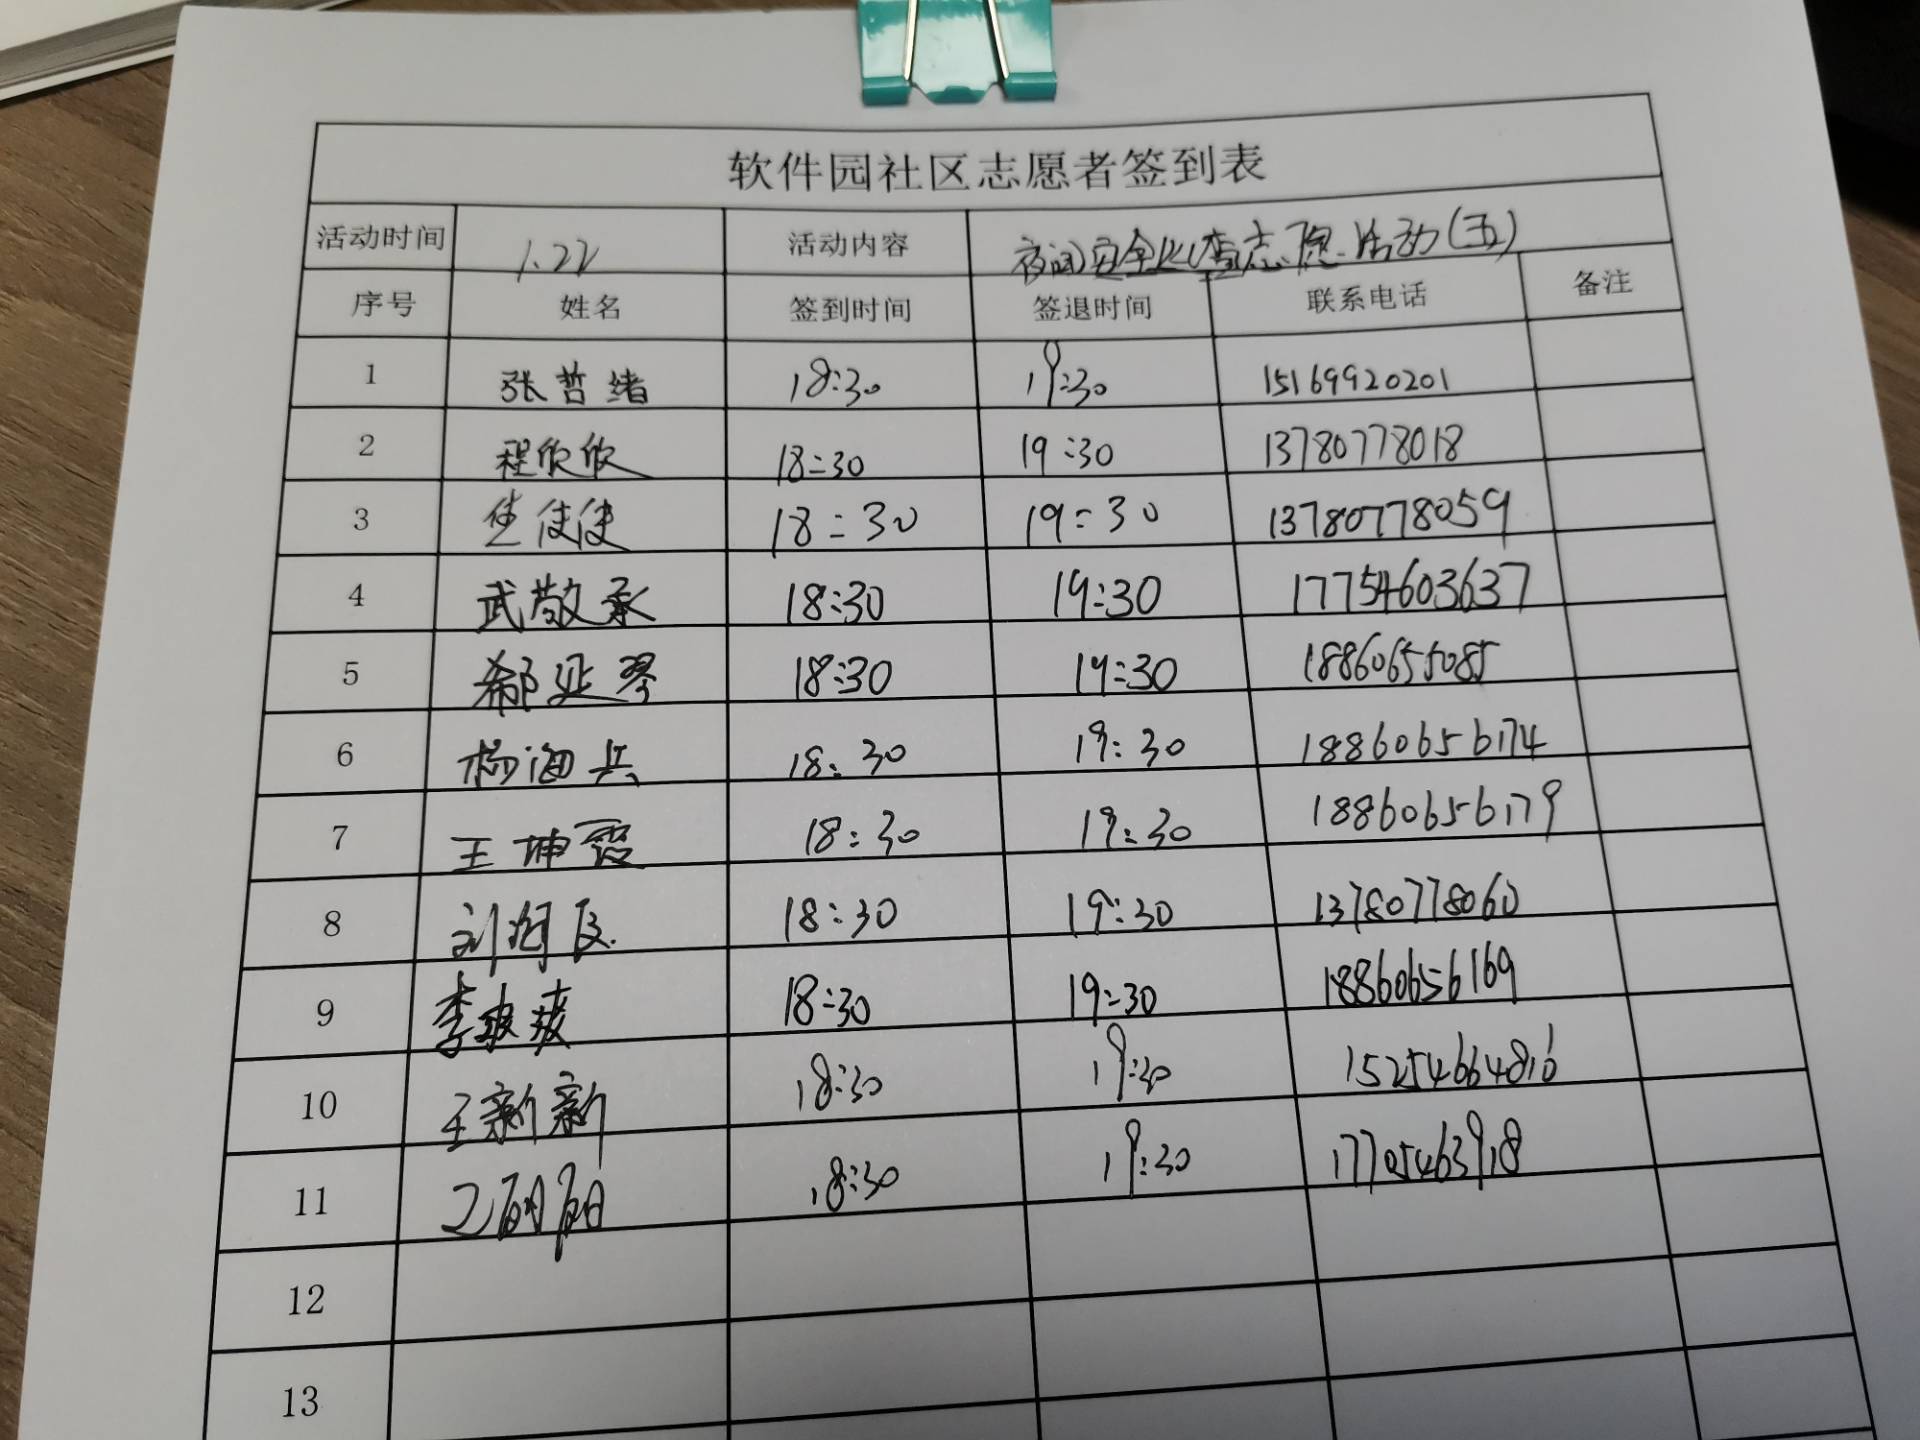 软件园社区志愿者签到表
活动时间 1.22 活动内容 夜间安全巡查志愿活动(五)
序号 姓名 签到时间 签退时间 联系电话 备注
1 张哲绪 18:30 19:30 15169920201
2 程欣欣 18:30 19:30 13780778018
3 18:30 19:30 13780778059
4 武敬承 18:30 19:30 17754603637
5 郗延琴 18:30 19:30 18860655085
6 杨海兵 18:30 19:30 18860656174
7 王坤霞 18:30 19:30 18860656179
8 18:30 19:30 13780778060
9 18:30 19:30 18860656169
10 王新新 18:30 19:30 15254664816
11 18:30 19:30 17705463918
12
13